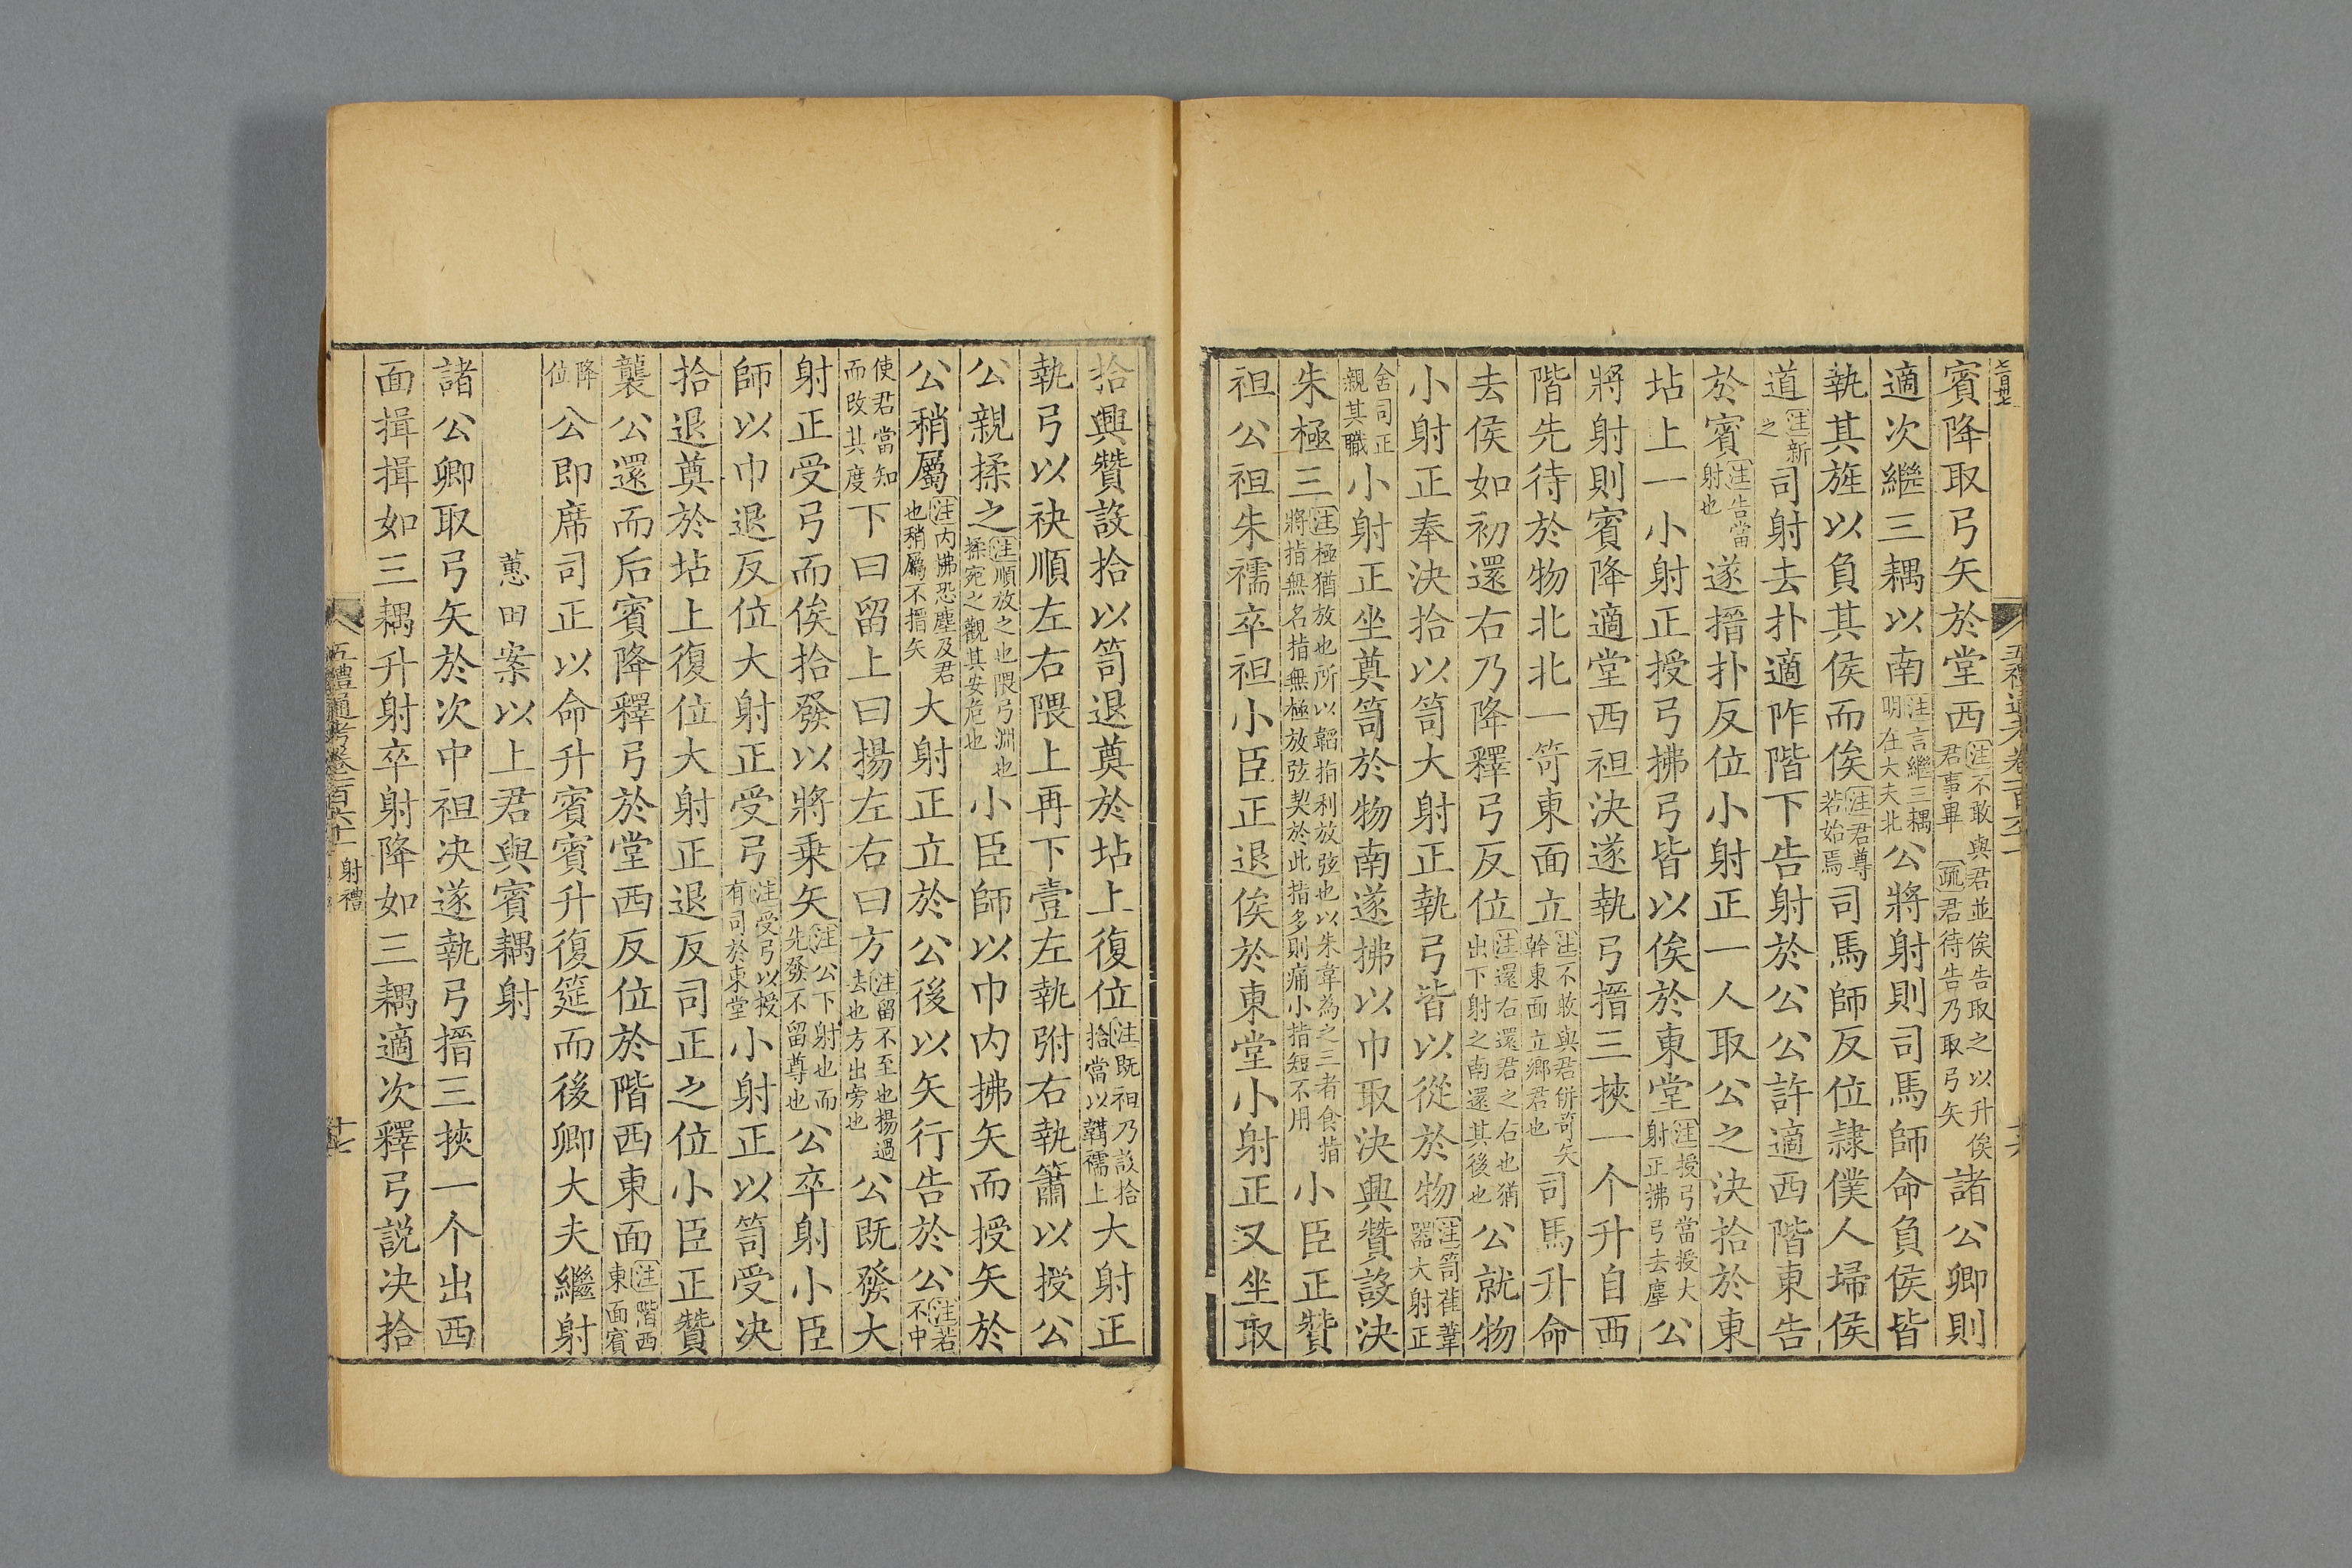 賓降取弓矢於堂西注不敢與君並俟告取之以升俟君事畢疏君待告乃取弓矢諸公卿則
適次繼三耦以南注言繼三耦明在大夫北公將射則司馬師命負侯皆
執其旌以負其侯而俟注君尊若始焉司馬師反位隷僕人埽侯
道注新之司射去扑適阼階下告射於公公許適西階東告
於賓注告當射也遂搢扑反位小射正一人取公之決拾於東
坫上一小射正授弓拂弓皆以俟於東堂注授弓當授大射正拂弓去塵公
將射則賓降適堂西袒決遂執弓搢三挾一个升自西
階先待於物北北一笴東面立注不敢與君併笴矢幹東面立鄉君也司馬升命
去侯如初還右乃降釋弓反位注還右還君之右也猶出下射之南還其後也公就物
小射正奉決拾以笥大射正執弓皆以從於物注笥萑葦器大射正
舍司正親其職小射正坐奠笥於物南遂拂以巾取決興贊設決
朱極三注極猶放也所以韜指利放弦也以朱韋為之三者食指將指無名指無極放弦契於此指多則痛小指短不用小臣正贊
袒公袒朱襦卒袒小臣正退俟於東堂小射正又坐取
拾興贊設拾以笥退奠於坫上復位注既袒乃設拾拾當以韝襦上大射正
執弓以袂順左右隈上再下壹左執弣右執簫以授公
公親揉之注順放之也隈弓淵也揉宛之觀其安危也小臣師以巾内拂矢而授矢於
公稍屬注内拂恐塵及君也稍屬不搢矢大射正立於公後以矢行告於公注若不中
使君當知而改其度下曰留上曰揚左右曰方注留不至也揚過去也方出旁也公既發大
射正受弓而俟拾發以將乘矢注公下射也而先發不留尊也公卒射小臣
師以巾退反位大射正受弓注受弓以授有司於東堂小射正以笥受決
拾退奠於坫上復位大射正退反司正之位小臣正贊
襲公還而后賓降釋弓於堂西反位於階西東面注階西東面賓
降位公即席司正以命升賓賓升復筵而後卿大夫繼射
蕙田案以上君與賓耦射
諸公卿取弓矢於次中袒決遂執弓搢三挾一个出西
面揖揖如三耦升射卒射降如三耦適次釋弓説決拾
五禮通考卷一百六十一 射禮
十七